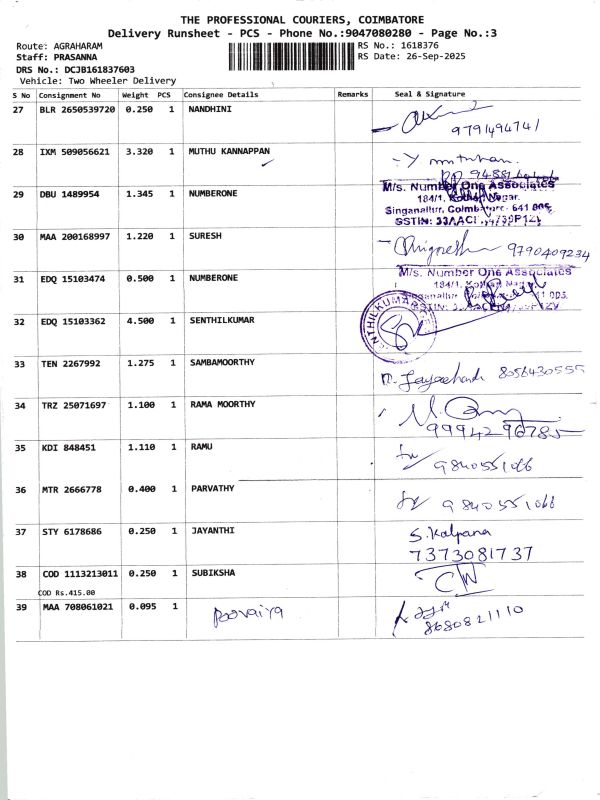 THE PROFESSIONAL COURIERS, COIMBATORE
Delivery Runsheet - PCS - Phone No.:9047080280 - Page No.:3
Route: AGRAHARAM RS No.: 1618376
Staff: PRASANNA RS Date: 26-Sep-2025
DRS No.: DCJB161837603
Vehicle: Two Wheeler Delivery
S No Consignment No Weight PCS Consignee Details Remarks Seal & Signature
27 BLR 2650539720 0.250 1 NANDHINI
9791494741
28 IXM 509056621 3.320 1 MUTHU KANNAPPAN
29 DBU 1489954 1.345 1 NUMBERONE M/s. Number One Associates
184/1, Kothari Nagar,
Singanallur, Coimbatore - 641 005.
30 MAA 200168997 1.220 1 SURESH
9790409234
31 EDQ 15103474 0.500 1 NUMBERONE M/s. Number One Associates
32 EDQ 15103362 4.500 1 SENTHILKUMAR
33 TEN 2267992 1.275 1 SAMBAMOORTHY
8056430555
34 TRZ 25071697 1.100 1 RAMA MOORTHY
9994296785
35 KDI 848451 1.110 1 RAMU
9840551066
36 MTR 2666778 0.400 1 PARVATHY
9840551066
37 STY 6178686 0.250 1 JAYANTHI S. Kalpana
7373081737
38 COD 1113213011 0.250 1 SUBIKSHA
COD Rs.415.00
39 MAA 708061021 0.095 1 Poovaiya
8680821110